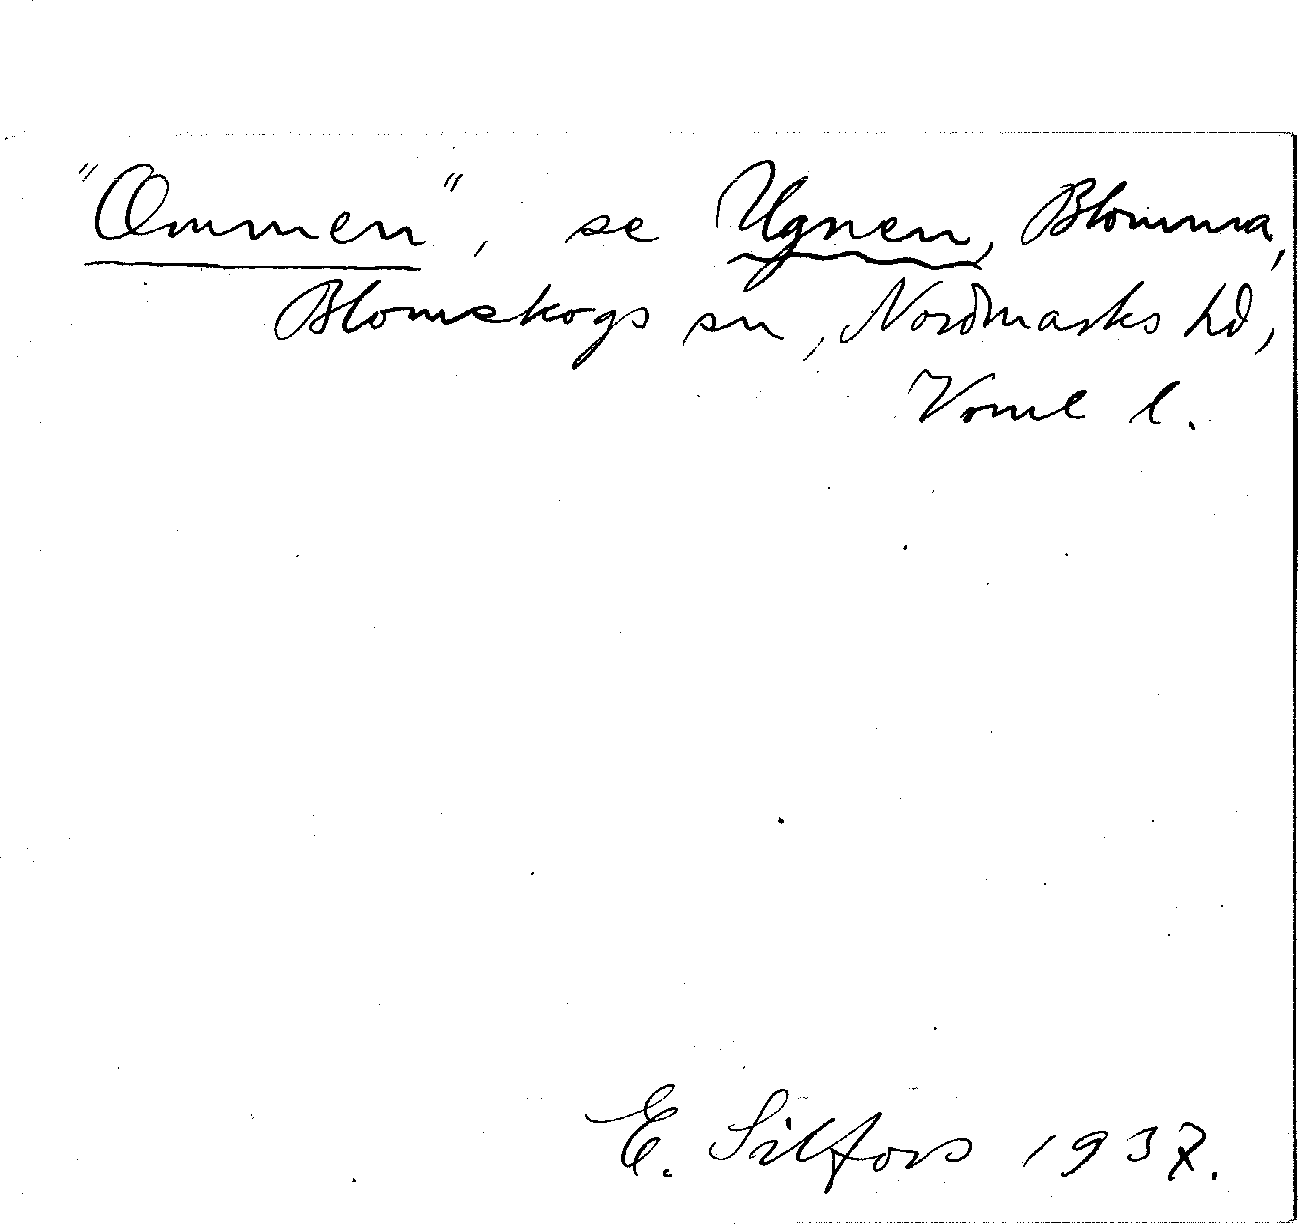 "Ommen", se Ugnen, Blomma,
Blomskogs sn, Nordmarks hd,
Vrml l.
E. Silfors 1937.